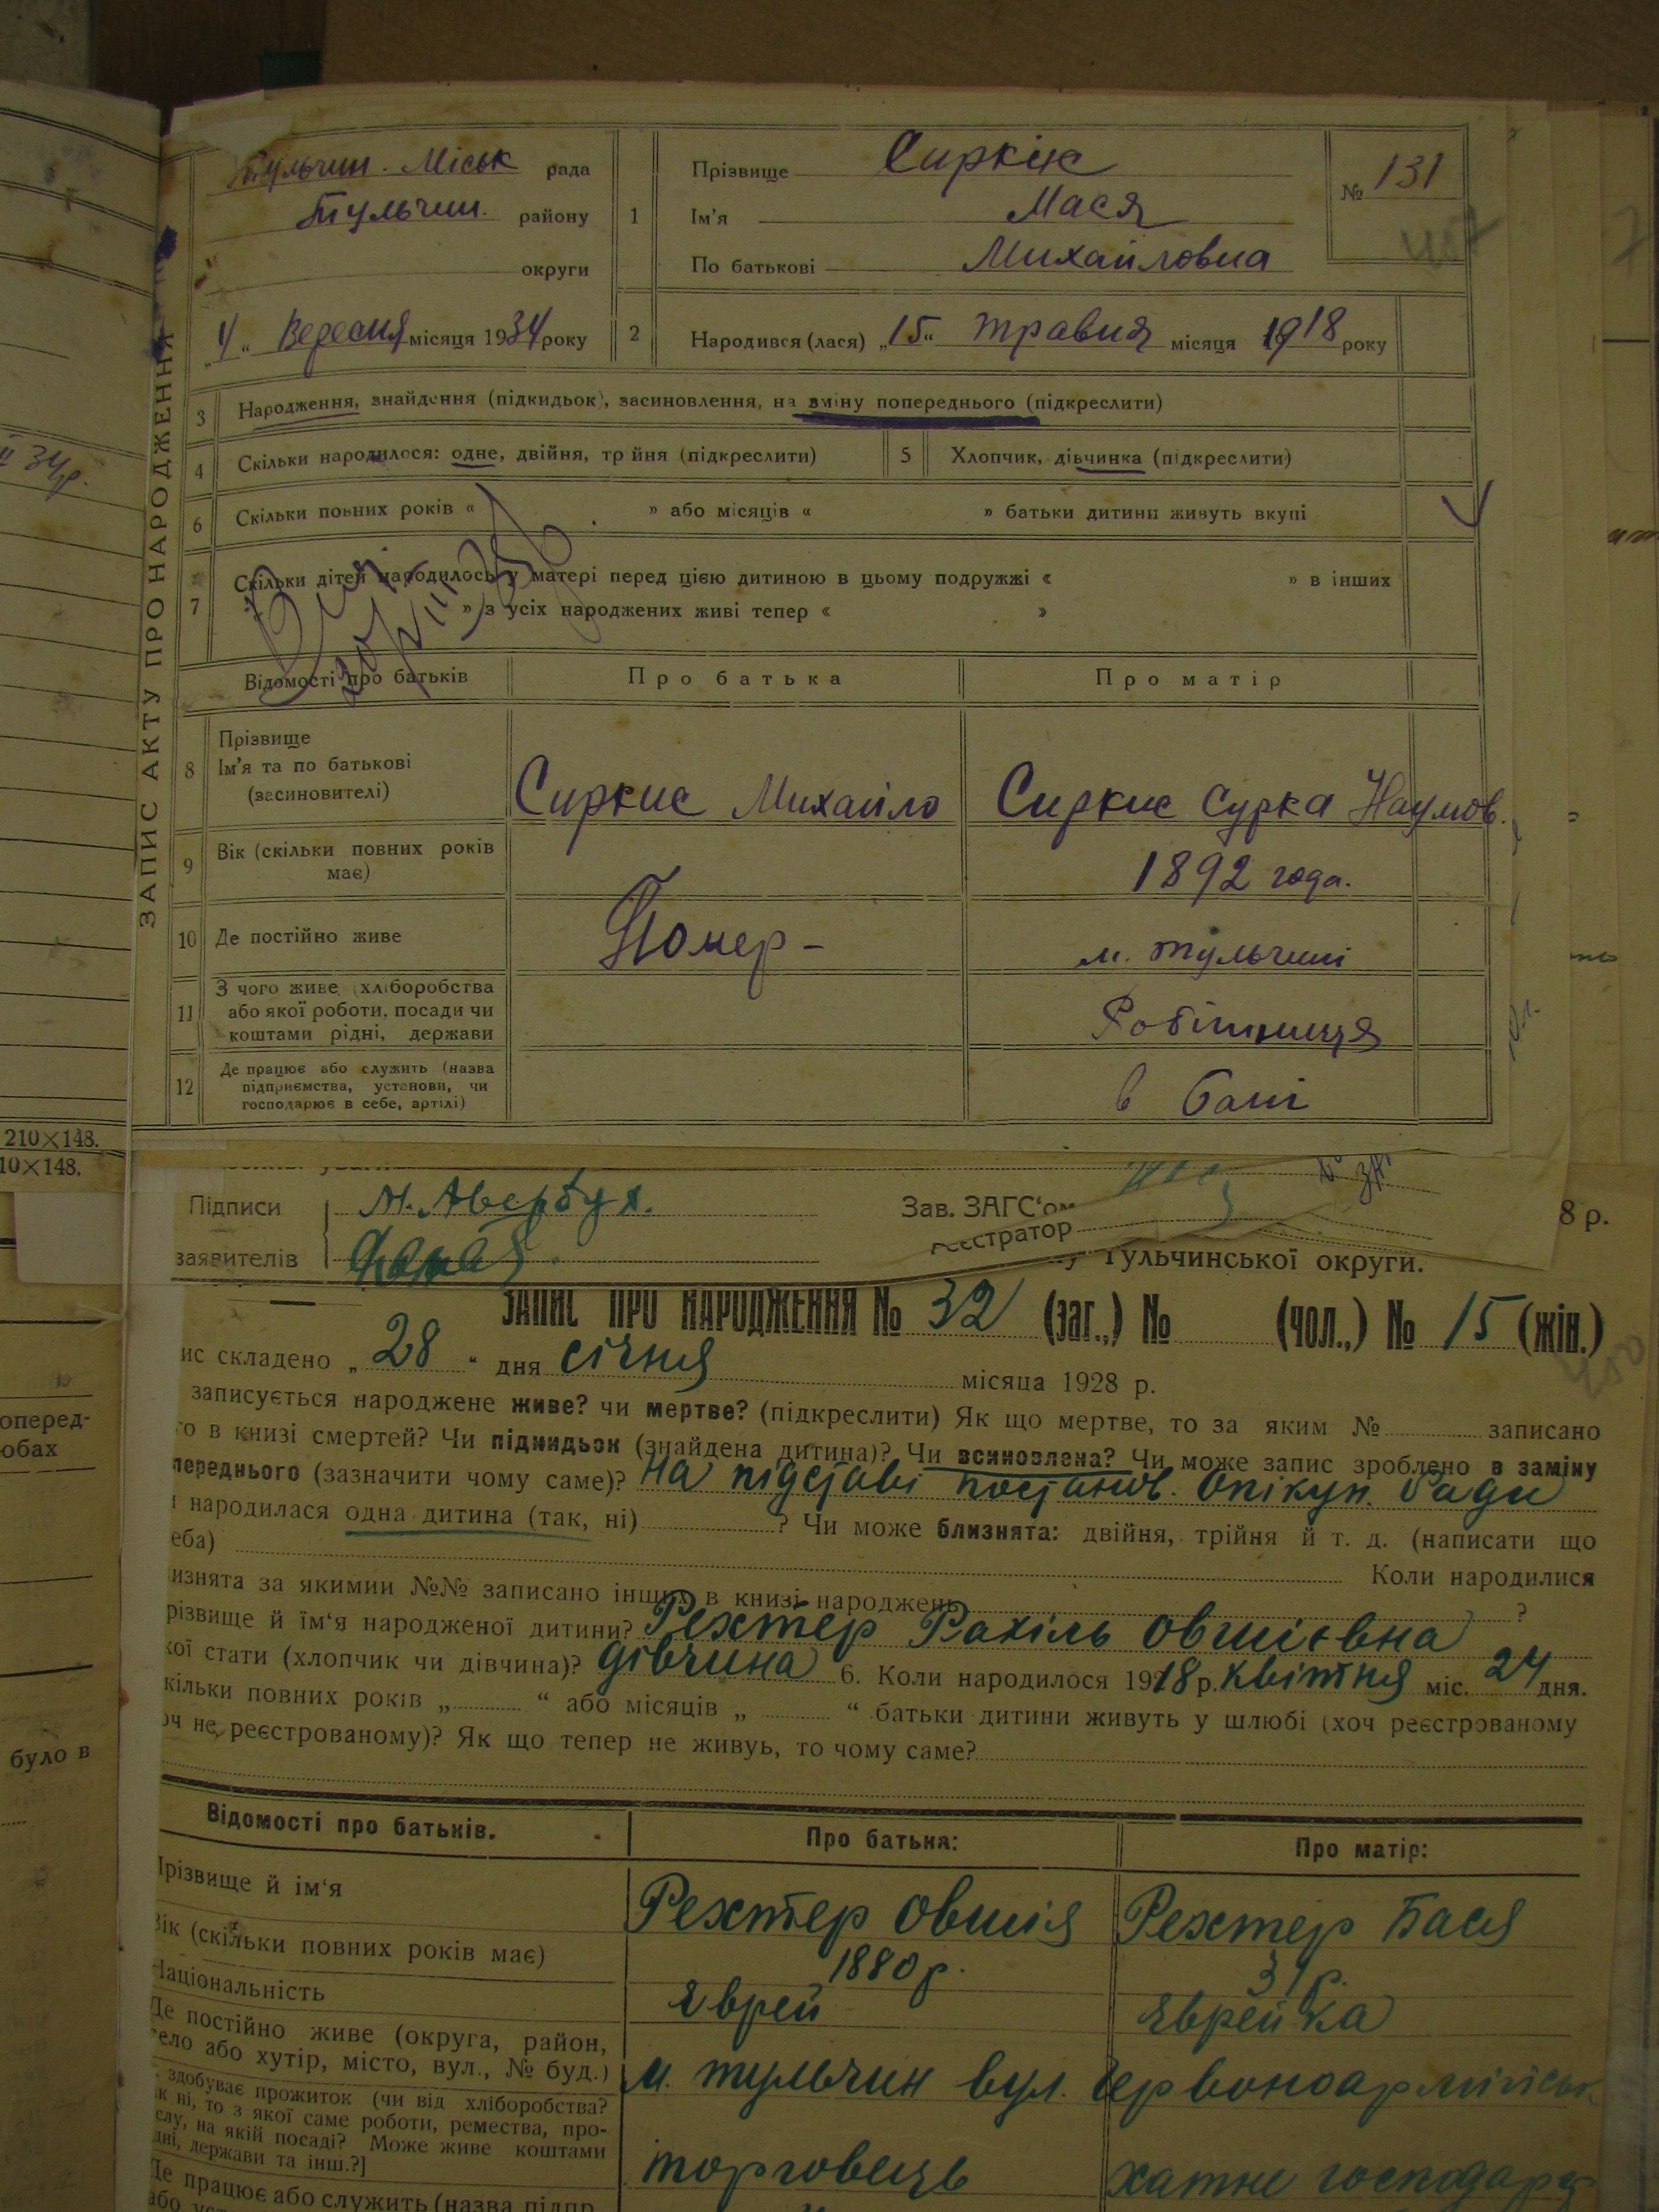 ЗАПИС АКТУ ПРО НАРОДЖЕННЯ
Тульчин. Міськ рада
Тульчин. району
округи
„4„ Вересня місяця 1934 року
1 Прізвище Сиркіс
Ім'я Мася
По батькові Михайловна
№ 131
2 Народився (лася) „15„ травня місяця 1918 року
3 Народження, знайдення (підкидьок), засиновлення, на зміну попереднього (підкреслити)
4 Скільки народилося: одне, двійня, тр йня (підкреслити) 5 Хлопчик, дівчинка (підкреслити)
6 Скільки повних років « » або місяців « » батьки дитини живуть вкупі
7 Скільки дітей народилось у матері перед цією дитиною в цьому подружжі « » в інших
» з усіх народжених живі тепер « »
Відомості про батьків Про батька Про матір
8 Прізвище
Ім'я та по батькові
(засиновителі)
Сиркис Михайло Сиркис Сурка Наумов.
9 Вік (скільки повних років
має)
1892 года.
10 Де постійно живе Помер - м. Тульчині
11 З чого живе (хліборобства
або якої роботи, посади чи
коштами рідні, держави
Робітниця
12 Де працює або служить (назва
підприємства, установи, чи
господарює в себе, артілі)
в бані
34р.
210×148.
10×148.
Підписи М. Авербух. Зав. ЗАГС'ом
заявителів
еєстратор
8 р.
у Тульчинської округи.
ЗАПИС ПРО НАРОДЖЕННЯ № 32 (заг.,) № (чол.,) № 15 (жін.)
ис складено „28“ дня січня місяца 1928 р.
записується народжене живе? чи мертве? (підкреслити) Як що мертве, то за яким № записано
го в книзі смертей? Чи підкидьок (знайдена дитина)? Чи всиновлена? Чи може запис зроблено в заміну
переднього (зазначити чому саме)? На підставі постанов. Опікун. Ради
и народилася одна дитина (так, ні) ? Чи може близнята: двійня, трійня й т. д. (написати що
еба) Коли народилися
изнята за якими №№ записано інших в книзі народжень ?
різвище й їм'я народженої дитини? Рехтер Рахіль Овшієвна
кої стати (хлопчик чи дівчина)? дівчина 6. Коли народилося 1918 р. квітня міс. 24 дня.
кільки повних років „ “ або місяців „ “ батьки дитини живуть у шлюбі (хоч реєстрованому
оч не реєстрованому)? Як що тепер не живуь, то чому саме?
Відомості про батьків. Про батька: Про матір:
Прізвище й ім'я Рехтер Овшія Рехтер Бася
Вік (скільки повних років має) 1880 р.
Національність Єврей Єврейка
Де постійно живе (округа, район,
село або хутір, місто, вул., № буд.)
м. Тульчин вул. Червоноармійськ
здобуває прожиток (чи від хліборобства?
к ні, то з якої саме роботи, ремества, про-
слу, на якій посаді? Може живе коштами
дні, держави та інш.?]
торговець хатне господар
Де працює або служить (назва підпр
оперед-
юбах
було в